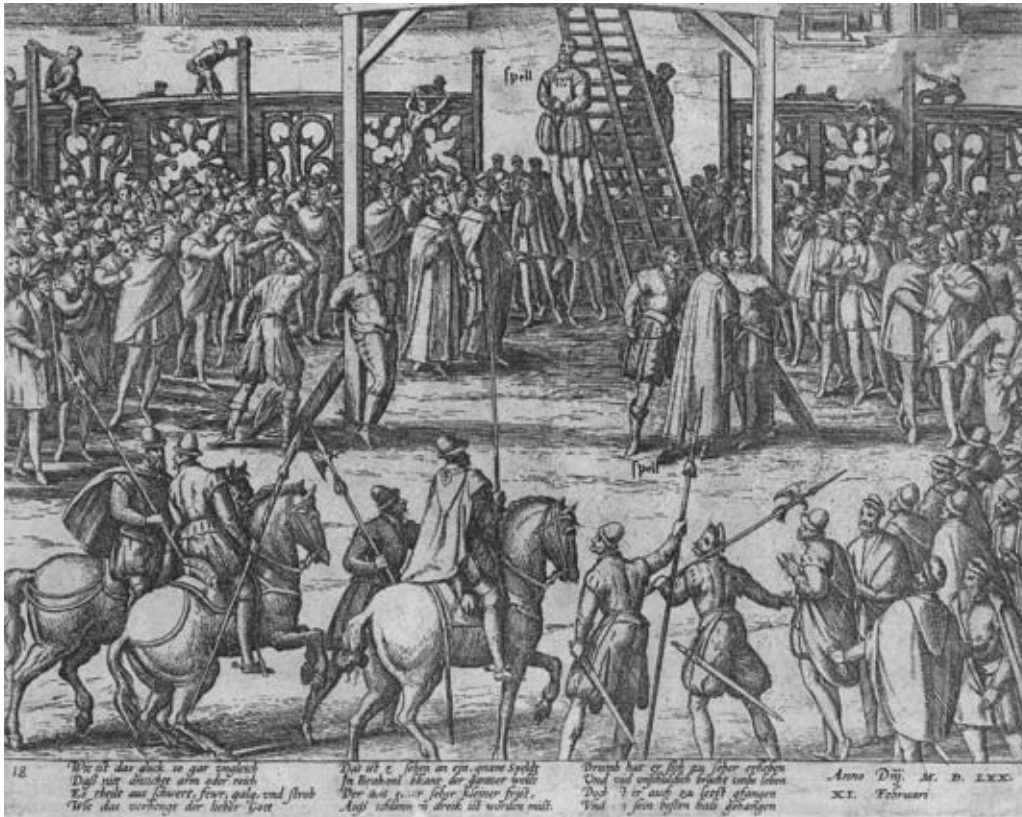 spell
spell
18
Wie ist das glück so gar ungleich
Daß nitt ansichtt arm oder reich
Es theilt aus schwert, fewr, galg, vnd strob
Wie das verhengt der lieber Gott
Das ist z sehen an ein, gnant Speldt
In Brabant
Der seher kleiner frist,
Auß schlam vnd dreck ist worden
Drumb hat er sich zu seher erheben
Vnd viel vnschuldich bracht vmbs leben
Doch ist er auch zu letst gfangen
Vnd sein besten hals gehangen
Anno Dnj. M. D. LXX.
XI. Februari